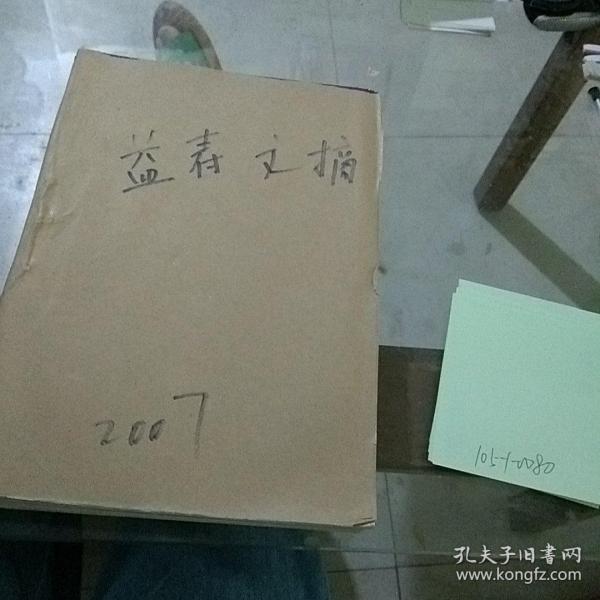 益寿文摘
2007
105-1-0080
孔夫子旧書网
www.kongfz.com